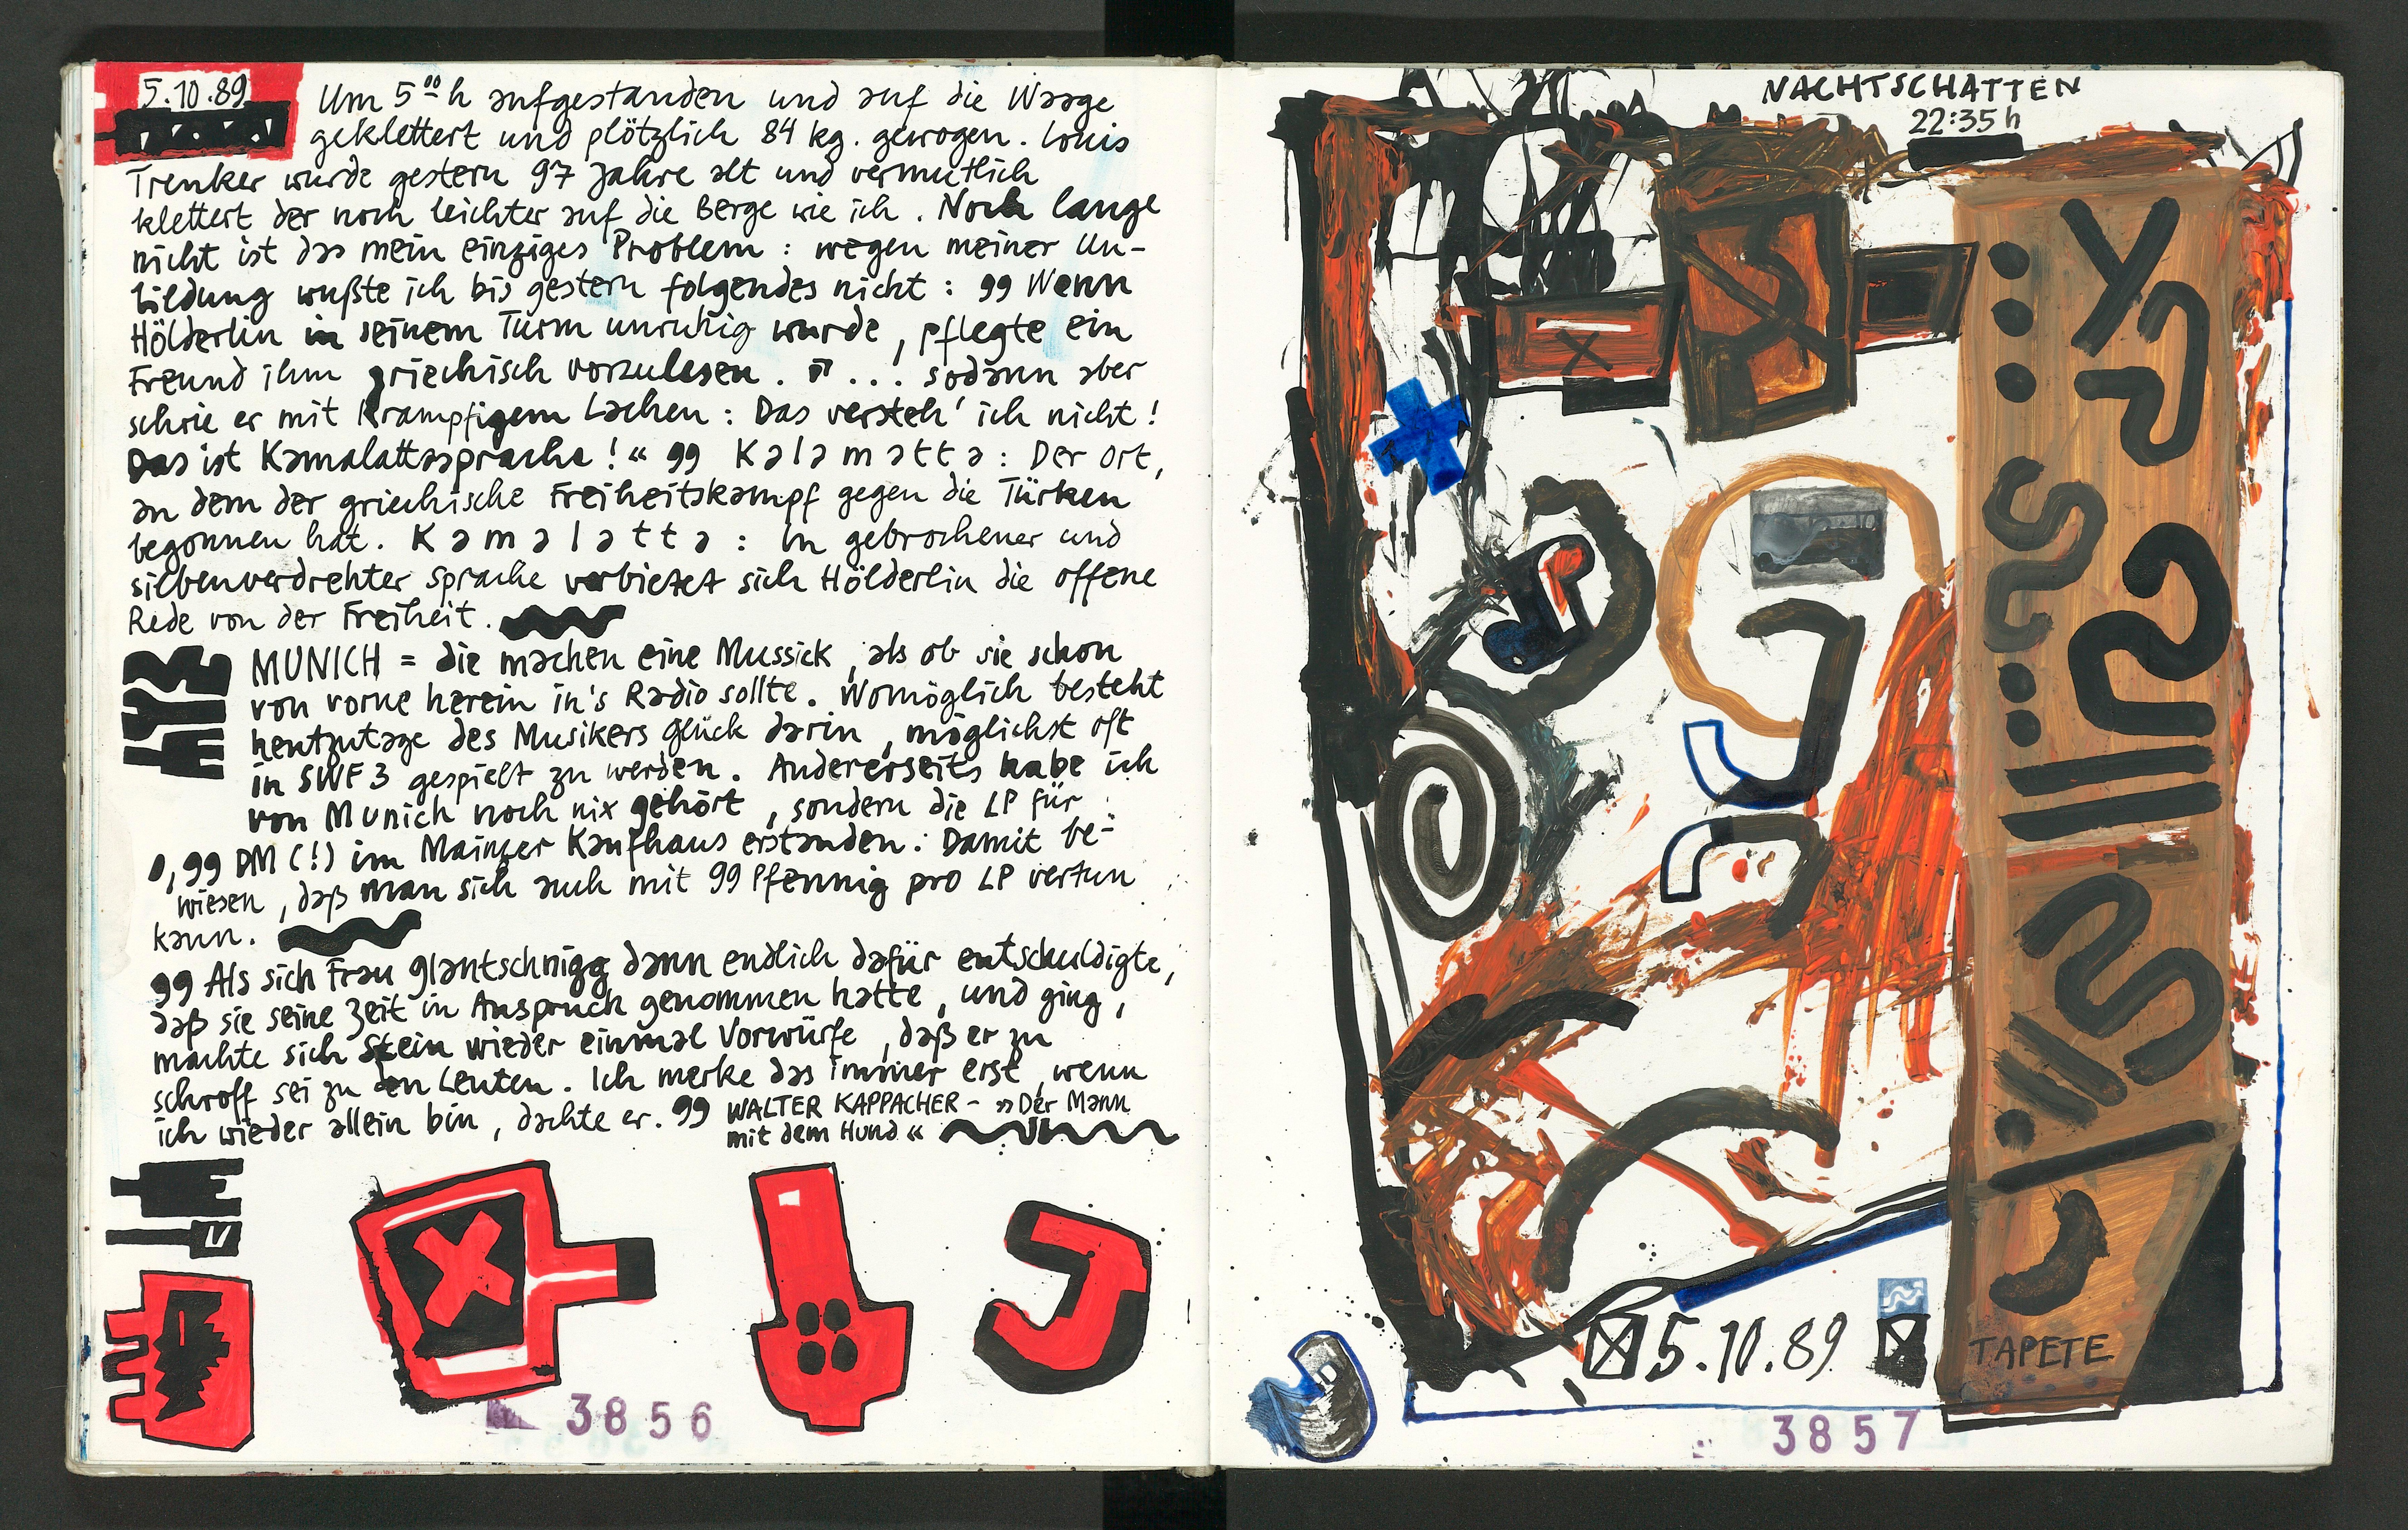 5.10.89
Um 5⁰⁰ h aufgestanden und auf die Waage
geklettert und plötzlich 84 kg. gewogen. Louis
Trenker wurde gestern 97 Jahre alt und vermutlich
klettert der noch leichter auf die Berge wie ich. Noch lange
nicht ist das mein einziges Problem: wegen meiner Un-
bildung wußte ich bis gestern folgendes nicht: 99 Wenn
Hölderlin in seinem Turm unruhig wurde, pflegte ein
Freund ihm griechisch vorzulesen. ... sodann aber
schrie er mit krampfigem Lachen: Das versteh' ich nicht!
Das ist Kamalattasprache!“ 99 Kalamatta: Der Ort,
an dem der griechische Freiheitskampf gegen die Türken
begonnen hat. Kamalatta: In gebrochener und
silbenverdrehter Sprache verbietet sich Hölderlin die offene
Rede von der Freiheit.
MUNICH = die machen eine Mussick, als ob sie schon
von vorne herein in's Radio sollte. Womöglich besteht
heutzutage des Musikers Glück darin, möglichst oft
in SWF3 gespielt zu werden. Andererseits habe ich
von Munich noch nix gehört, sondern die LP für
0,99 DM (!) im Mainzer Kaufhaus erstanden: Damit be-
wiesen, daß man sich auch mit 99 Pfennig pro LP vertun
kann.
99 Als sich Frau Glantschnigg dann endlich dafür entschuldigte,
daß sie seine Zeit in Anspruch genommen hatte, und ging,
machte sich Stein wieder einmal Vorwürfe, daß er zu
schroff sei zu den Leuten. Ich merke das immer erst, wenn
ich wieder allein bin, dachte er. 99 WALTER KAPPACHER - »Der Mann
mit dem Hund«
3856
NACHTSCHATTEN
22:35 h
5.10.89
TAPETE
3857